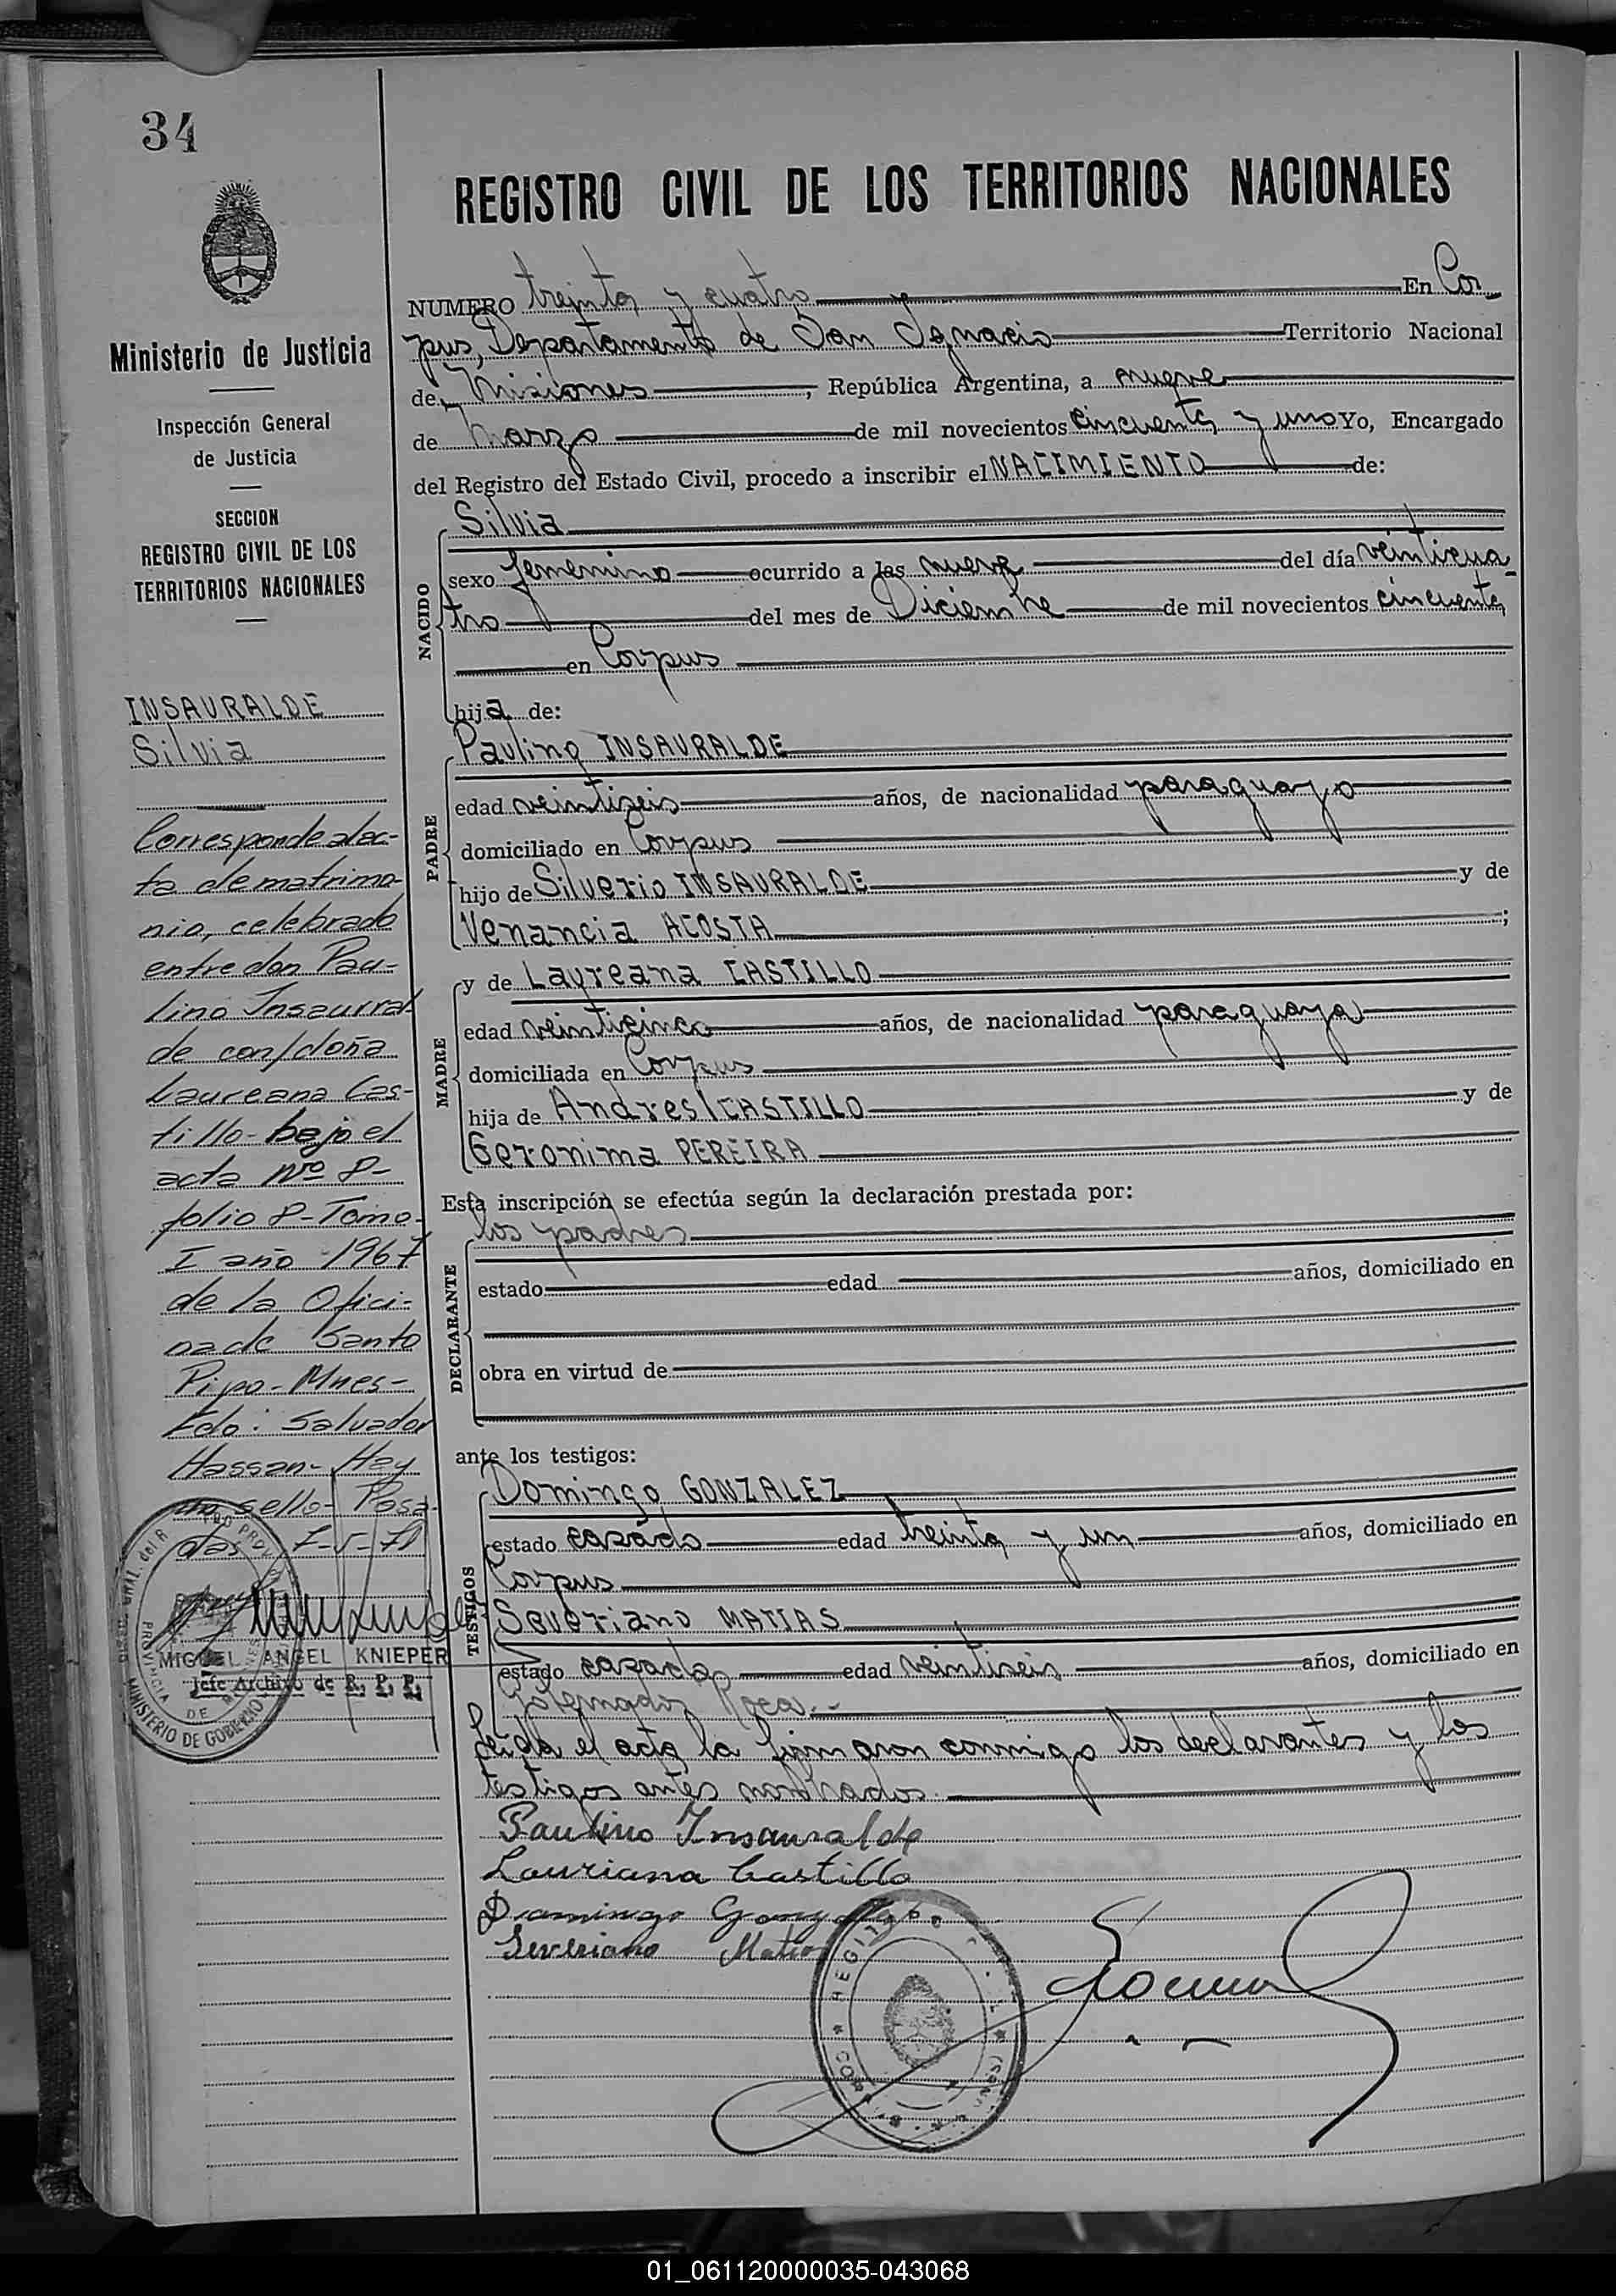 34
Ministerio de Justicia
Inspección General
de Justicia
SECCION
REGISTRO CIVIL DE LOS
TERRITORIOS NACIONALES
INSAURALDE
Silvia
Corresponde al ac-
ta de matrimo-
nio, celebrado
entre don Pau-
lino Insaurral-
de con/doña
Laureana Cas-
tillo- bajo el
acta Nº 8-
folio 8- Tomo-
I año 1967
de la Ofici-
na de Santo
Pipo- Mnes-
Fdo: Salvador
Hassan- Hay
un sello- Posa-
das 7-5-71
MIGUEL ANGEL KNIEPER
Jefe Archivo de R. P. P.
PROVINCIA DE
MINISTERIO DE GOBIERNO
REGISTRO CIVIL DE LOS TERRITORIOS NACIONALES
NUMERO treinta y cuatro En Cor
pus, Departamento de San Ignacio Territorio Nacional
de Misiones, República Argentina, a nueve
de Marzo de mil novecientos cincuenta y uno Yo, Encargado
del Registro del Estado Civil, procedo a inscribir el NACIMIENTO de:
NACIDO
Silvia
sexo femenino ocurrido a las nueve del día veinticua
tro del mes de Diciembre de mil novecientos cincuenta
en Corpus
hija de:
PADRE
Paulino INSAURALDE
edad veintiseis años, de nacionalidad paraguayo
domiciliado en Corpus
hijo de Silverio INSAURALDE y de
Venancia ACOSTA;
MADRE
y de Laureana CASTILLO
edad veinticinco años, de nacionalidad paraguaya
domiciliada en Corpus
hija de Andres CASTILLO y de
Geronima PEREIRA
Esta inscripción se efectúa según la declaración prestada por:
DECLARANTE
los padres
estado edad años, domiciliado en
obra en virtud de
ante los testigos:
TESTIGOS
Domingo GONZALEZ
estado casado edad treinta y un años, domiciliado en
Corpus
Severiano MATIAS
estado casado edad veintiseis años, domiciliado en
Gobernador Roca.-
Leida el acta la firmaron conmigo los declarantes y los
testigos antes nombrados.
Paulino Insauralde
Lauriana Castillo
Domingo Gonzalez
Severiano Matias
01_061120000035-043068